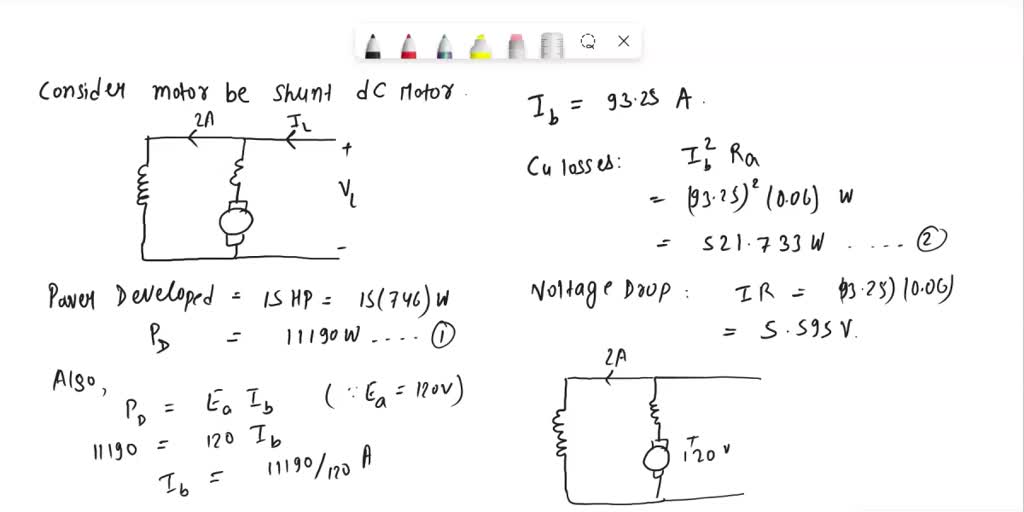 Consider motor be shunt dC Motor.
2A
IL
+
VL
-
Power Developed = 15 HP = 15(746) W
PD = 11190W .... ①
Also,
PD = Ea Ib (∵ Ea = 120V)
11190 = 120 Ib
Ib = 11190/120 A
Ib = 93.25 A.
Cu losses: Ib² Ra
= (93.25)² (0.06) W
= 521.733 W ..... ②
Voltage Drop: IR = (93.25)(0.06)
= 5.595 V.
2A
120 V